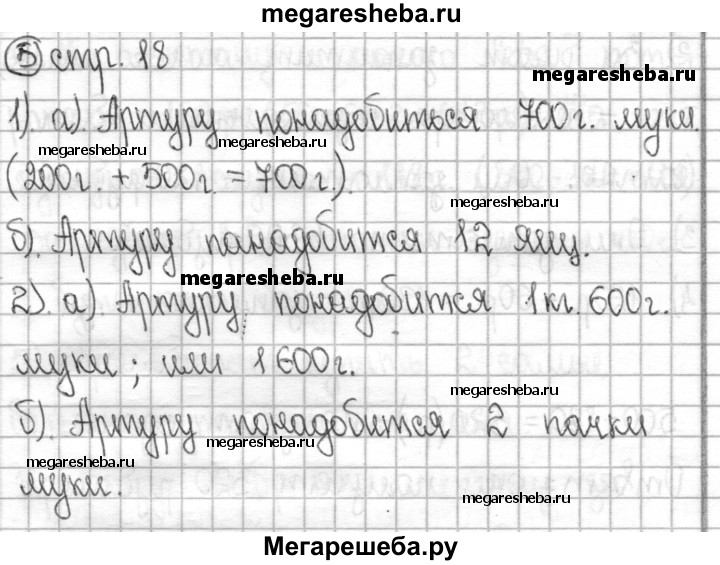 megaresheba.ru
5 стр. 18
megaresheba.ru
1). а). Артуру понадобиться 700г. муки.
megaresheba.ru
megaresheba.ru
(200г. + 500г. = 700г.).
megaresheba.ru
б). Артуру понадобится 12 яиц.
megaresheba.ru
2). а). Артуру понадобится 1кг. 600г.
муки; или 1600г.
megaresheba.ru
б). Артуру понадобится 2 = пачки
megaresheba.ru
megaresheba.ru
муки.
megaresheba.ru
Мегарешеба.ру